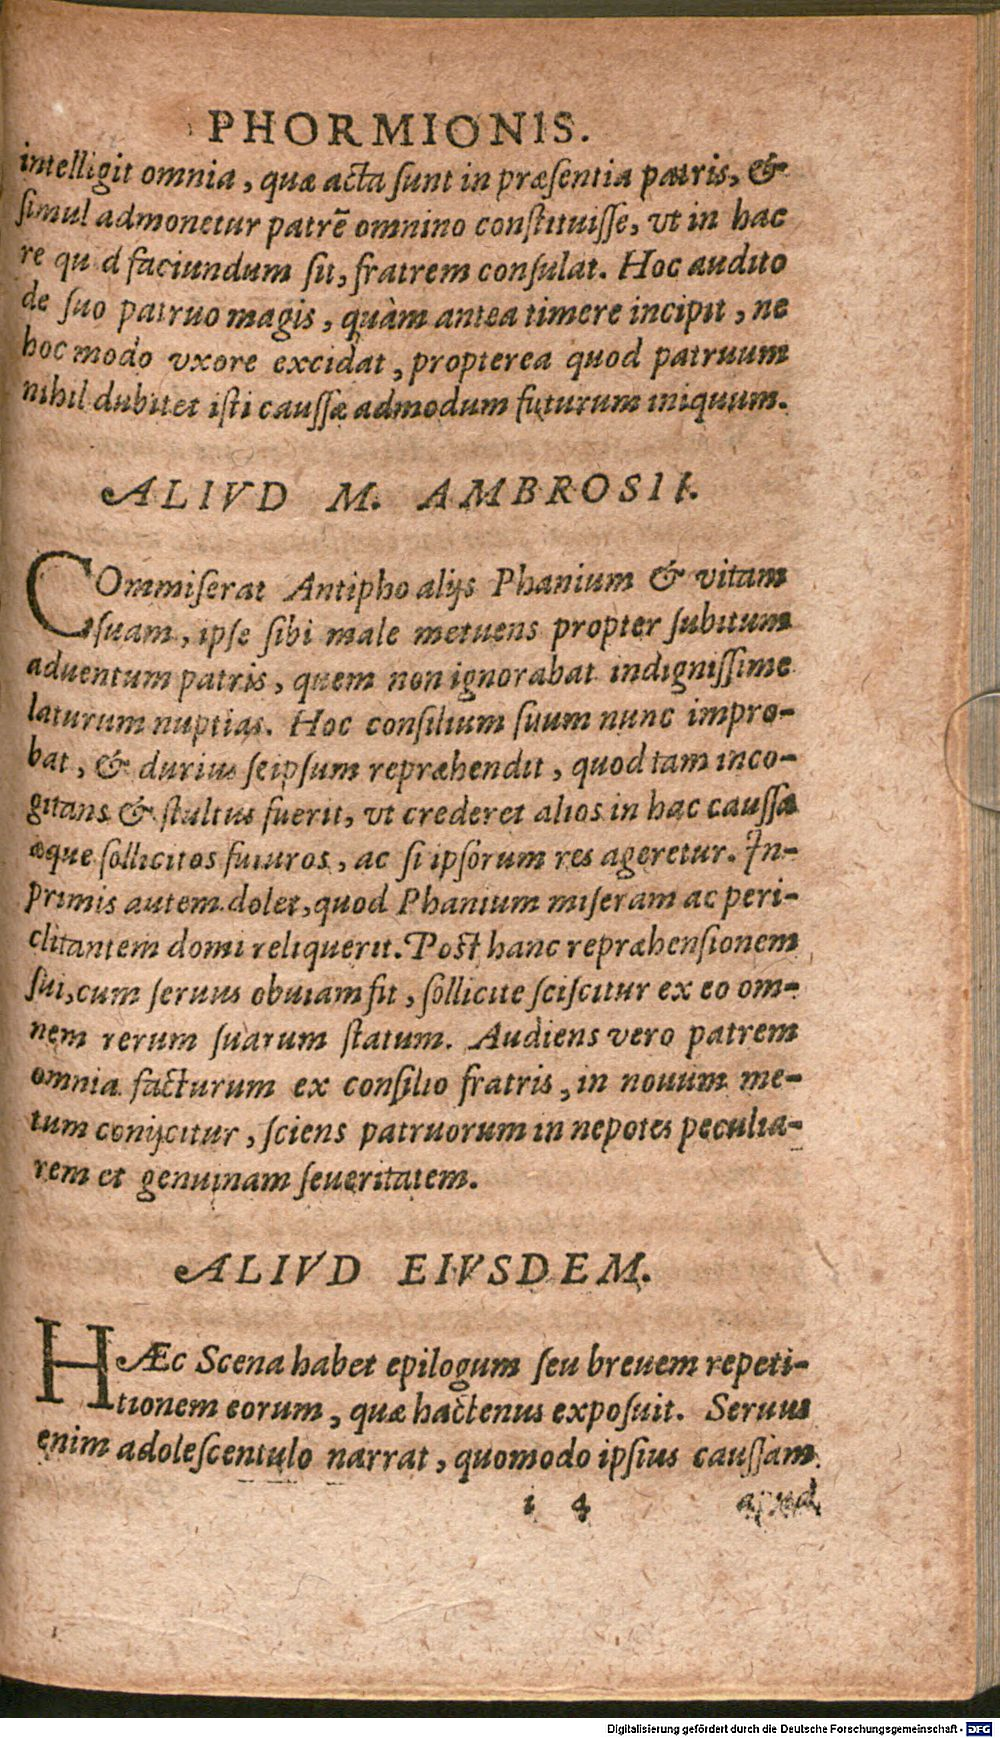 PHORMIONIS.
intelligit omnia, quæ acta sunt in præsentia patris, &
simul admonetur patrē omnino constituisse, vt in hac
re qu d faciundum sit, fratrem consulat. Hoc audito
de suo patruo magis, quàm antea timere incipit, ne
hoc modo vxore excidat, propterea quod patruum
nihil dubitet isti caussæ admodum futurum iniquum.
ALIVD M. AMBROSII.
COmmiserat Antipho alijs Phanium & vitam
suam, ipse sibi male metuens propter subitum
aduentum patris, quem non ignorabat indignissime
laturum nuptias. Hoc consilium suum nunc impro-
bat, & durius seipsum repræhendit, quod tam inco-
gitans & stultus fuerit, vt crederet alios in hac caussa
æque sollicitos futuros, ac si ipsorum res ageretur. In-
primis autem dolet, quod Phanium miseram ac peri-
clitantem domi reliquerit. Post hanc repræhensionem
sui, cum seruus obuiam fit, sollicite sciscitur ex eo om-
nem rerum suarum statum. Audiens vero patrem
omnia facturum ex consilio fratris, in nouum me-
tum conijcitur, sciens patruorum in nepotes peculia-
rem et genuinam seueritatem.
ALIVD EIVSDEM.
HÆc Scena habet epilogum seu breuem repeti-
tionem eorum, quæ hactenus exposuit. Seruus
enim adolescentulo narrat, quomodo ipsius caussam
i 4 apud
Digitalisierung gefördert durch die Deutsche Forschungsgemeinschaft - DFG